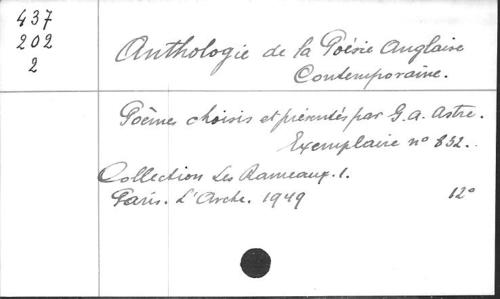 437
202
2
Anthologie de la Poésie Anglaise
Contemporaine.
Poèmes choisis et présentés par G. A. Astre.
Exemplaire nº 852.
Collection Les Rameaux. 1.
Paris. L'Arche. 1949 12º